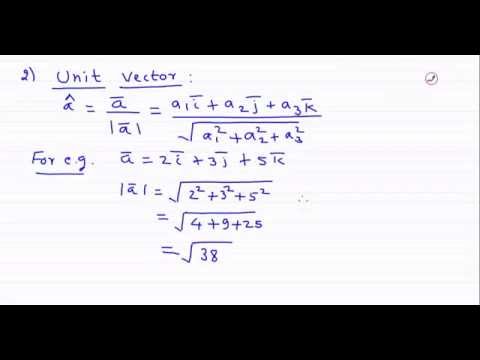 2) Unit Vector :
â = a̅ / |a̅| = (a₁i̅ + a₂j̅ + a₃k̅) / √(a₁² + a₂² + a₃²)
For e.g. a̅ = 2i̅ + 3j̅ + 5k̅
|a̅| = √(2² + 3² + 5²) ∴
= √(4 + 9 + 25)
= √38